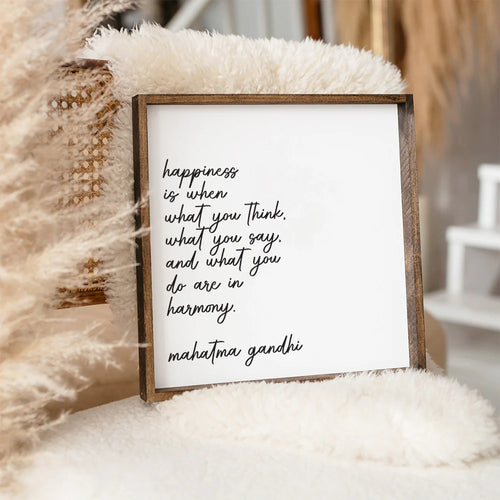 happiness
is when
what you think,
what you say,
and what you
do are in
harmony.
mahatma gandhi